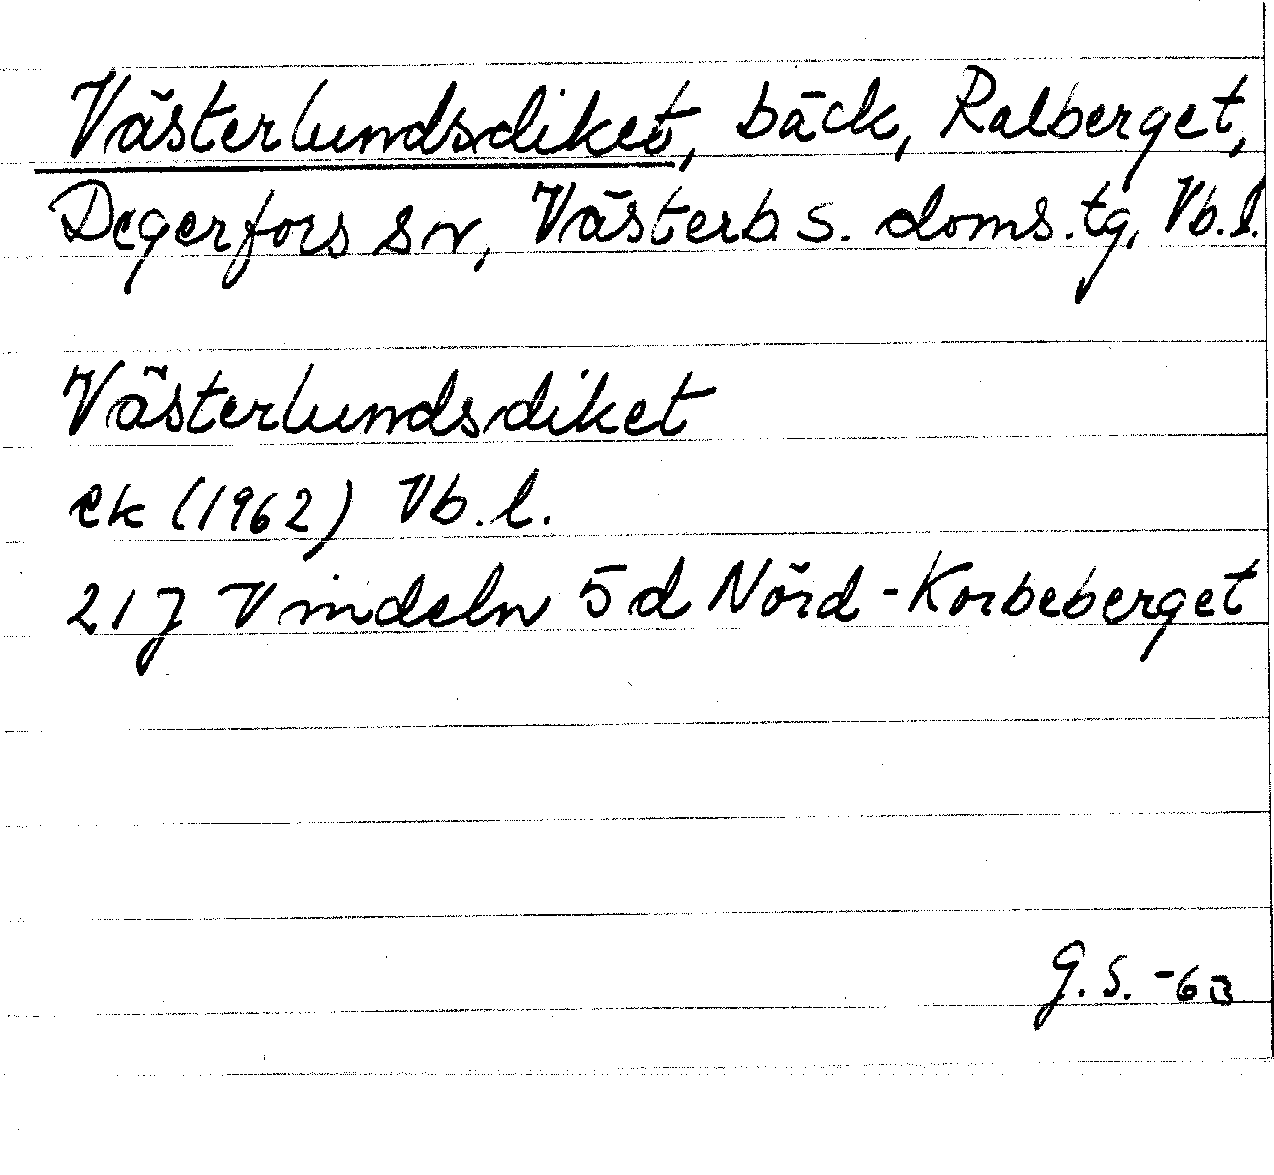 Västerlundsdiket, bäck, Ralberget,
Degerfors sn, Västerb. s. doms. tg, Vb. l.
Västerlundsdiket
ek (1962) Vb. l.
21J Vindeln 5d Nörd-Korbeberget
G.S. -63